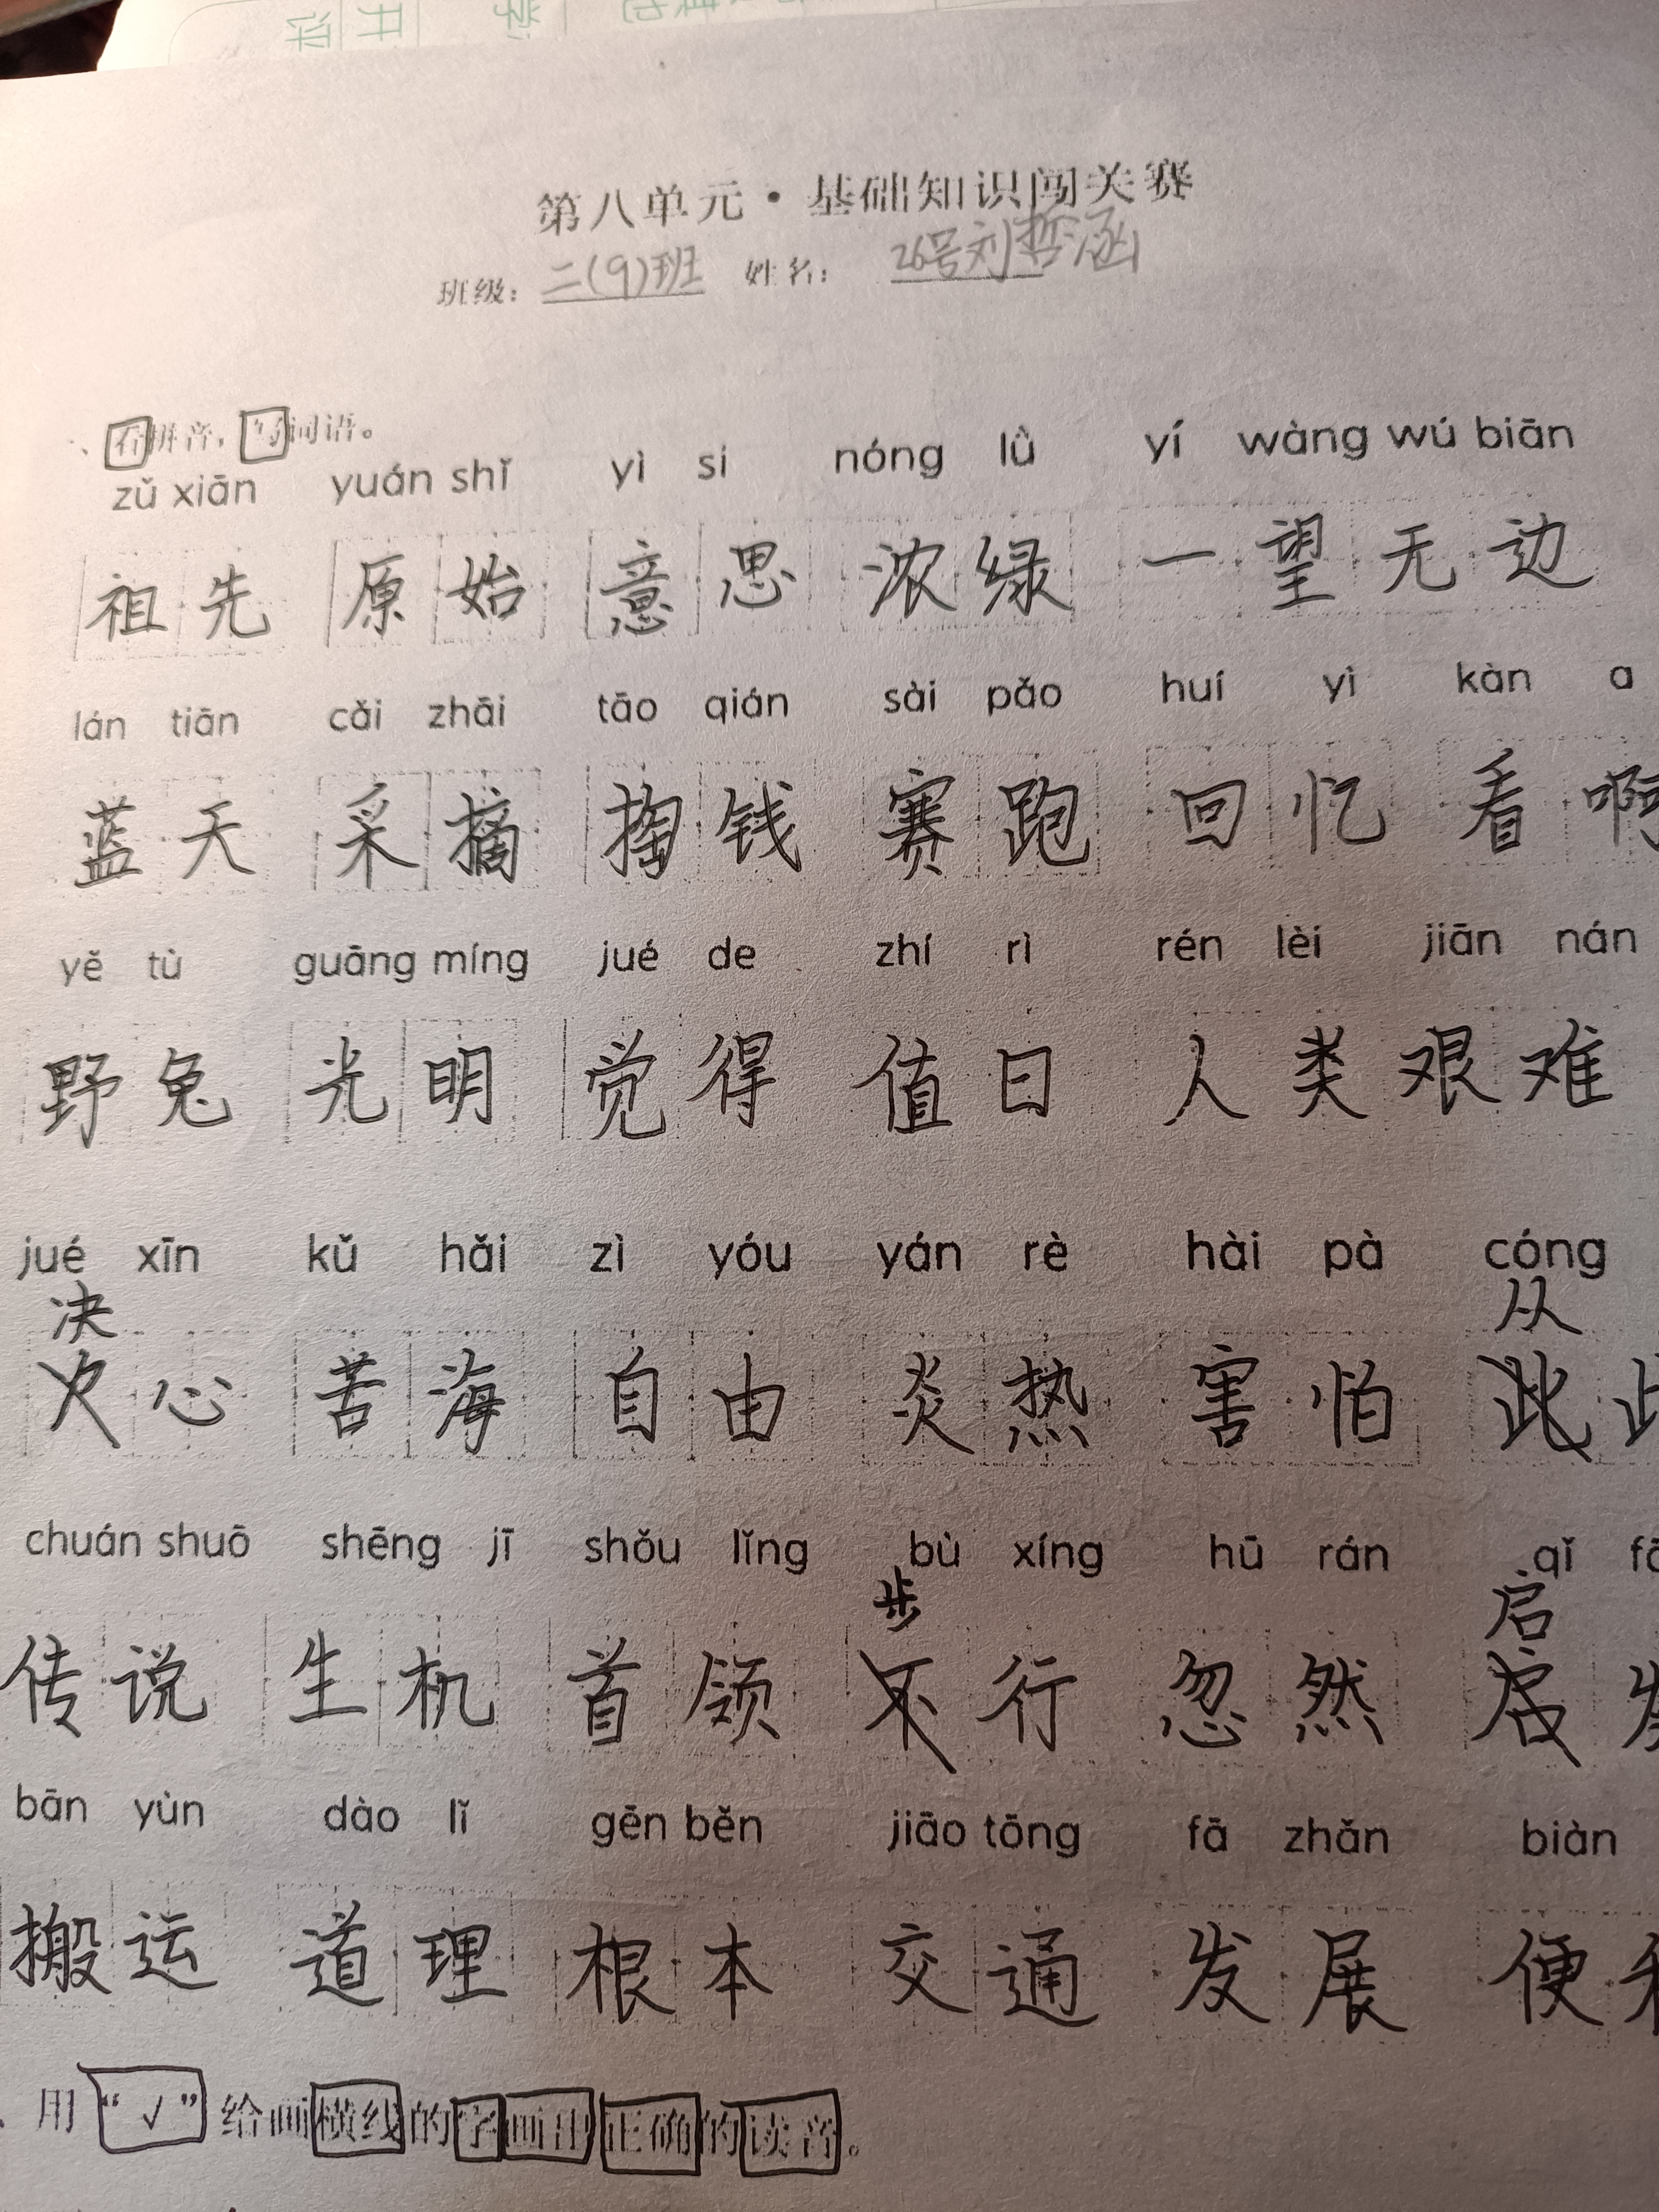 第八单元·基础知识闯关赛
班级：二(9)班 姓名：26号刘哲涵
、看拼音，写词语。
zǔ xiān yuán shǐ yì si nóng lǜ yí wàng wú biān
祖先 原始 意思 浓绿 一望无边
lán tiān cǎi zhāi tāo qián sài pǎo huí yì kàn a
蓝天 采摘 掏钱 赛跑 回忆 看啊
yě tù guāng míng jué de zhí rì rén lèi jiān nán
野兔 光明 觉得 值日 人类 艰难
jué xīn kǔ hǎi zì yóu yán rè hài pà cóng
决 从
心 苦海 自由 炎热 害怕 此
chuán shuō shēng jī shǒu lǐng bù xíng hū rán qǐ
步 启
传说 生机 首领 不行 忽然 启
bān yùn dào lǐ gēn běn jiāo tōng fā zhǎn biàn
搬运 道理 根本 交通 发展 便
、用“√”给画横线的字画出正确的读音。